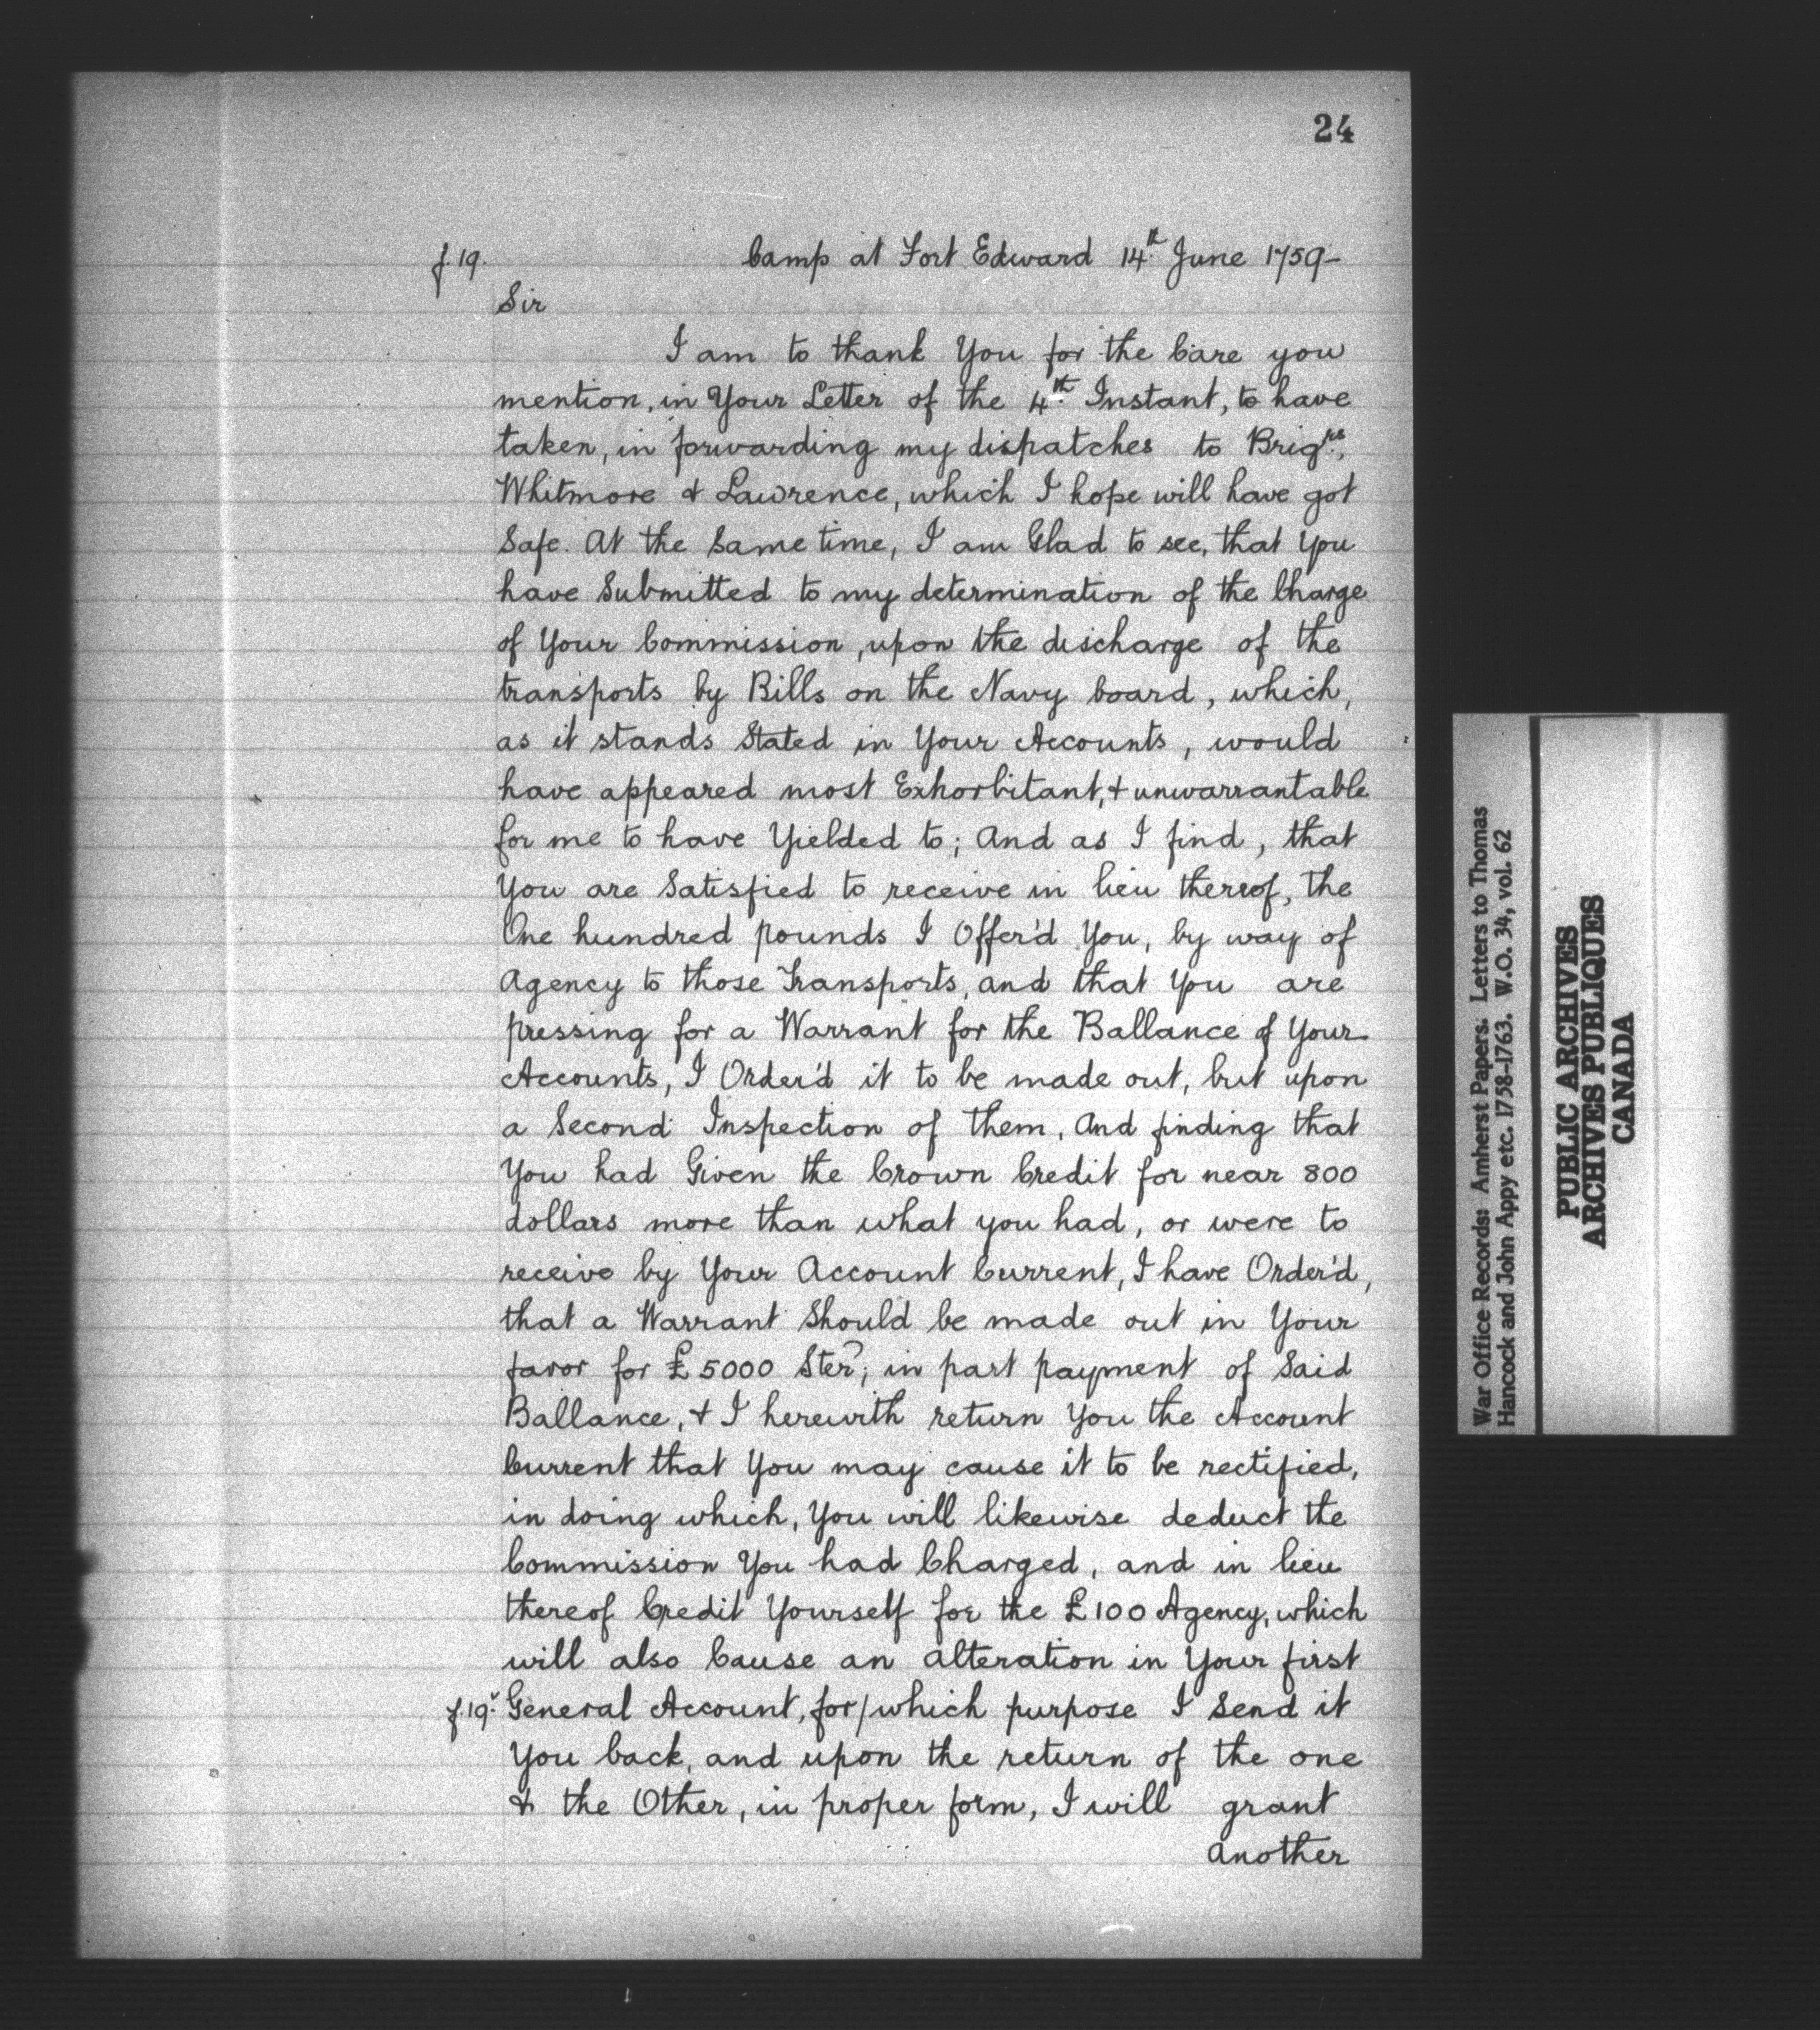 24
f. 19. Camp at Fort Edward 14th. June 1759-
Sir
I am to thank You for the Care you
mention, in Your Letter of the 4th. Instant, to have
taken, in forwarding my dispatches to Brigrs.
Whitmore & Lawrence, which I hope will have got
Safe. At the Same time, I am Glad to see, that You
have Submitted to my determination of the Charge
of Your Commission, upon the discharge of the
transports by Bills on the Navy board, which,
as it stands Stated in Your Accounts, would
have appeared most Exhorbitant, & unwarrantable
for me to have Yielded to; And as I find, that
You are Satisfied to receive in lieu thereof, the
One hundred pounds I Offer'd You, by way of
Agency to those Transports, and that You are
pressing for a Warrant for the Ballance of Your
Accounts, I Order'd it to be made out, but upon
a Second Inspection of them, And finding that
You had Given the Crown Credit for near 800
dollars more than what you had, or were to
receive by Your Account Current, I have Order'd,
that a Warrant Should be made out in Your
favor for £5000 Ster?; in part payment of Said
Ballance, & I herewith return You the Account
Current that You may cause it to be rectified,
in doing which, You will likewise deduct the
Commission You had Charged, and in lieu
thereof Credit Yourself for the £100 Agency, which
will also Cause an alteration in Your first
f. 19v. General Account, for/which purpose I Send it
You back, and upon the return of the one
& the Other, in proper form, I will grant
another
War Office Records: Amherst Papers. Letters to Thomas
Hancock and John Appy etc. 1758-1763. W.O. 34, vol. 62
PUBLIC ARCHIVES
ARCHIVES PUBLIQUES
CANADA